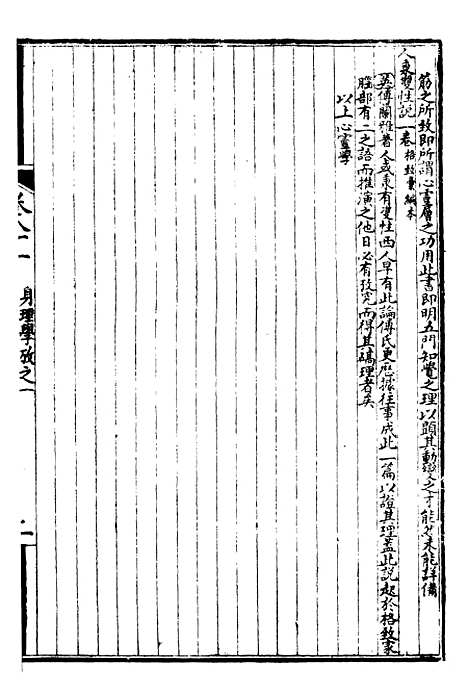 筋之所致即所謂心靈層之功用此書即明五門知覺之理以顯其動變之才能也未能詳備
人秉雙性說一卷 格致彙編本
英傅蘭雅著人或秉有雙性西人早有此論傅氏更歷據往事成此一篇以證其理蓋此說起於格致家
腦部有二之語而推演之他日必有攷究而得其確理者矣
以上心靈學
身理學攷之一